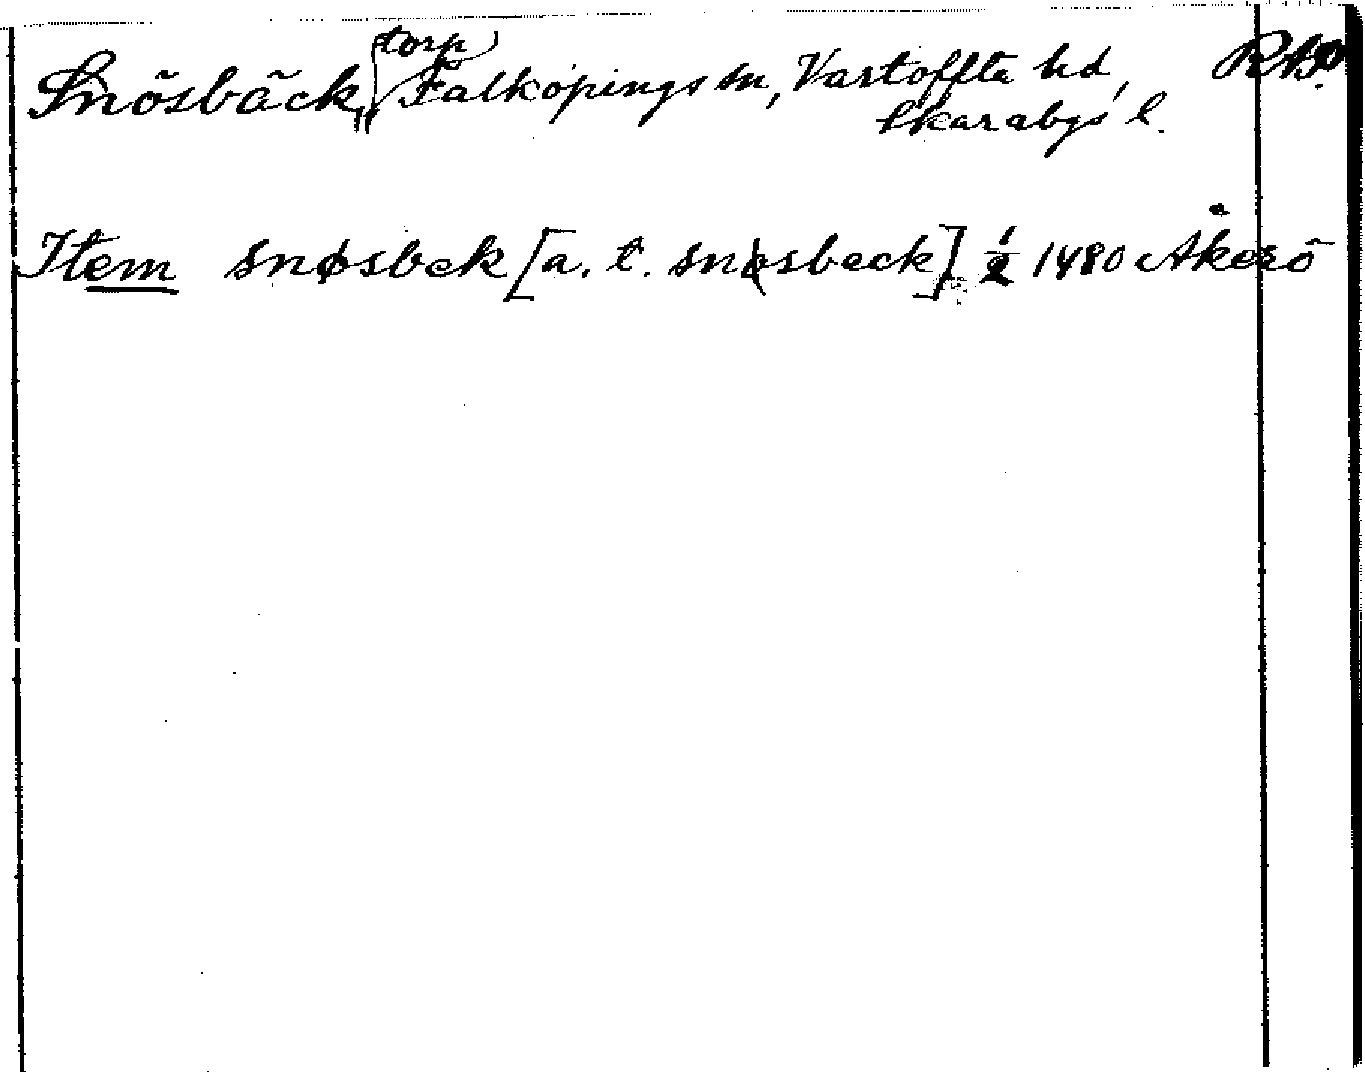 Snösbäck, torp, Falköpings sn, Vartoffta hd,
Skarabgs l.
Item snøsbek [a. t. snøsbeck] 1/2 1480 Åkerö